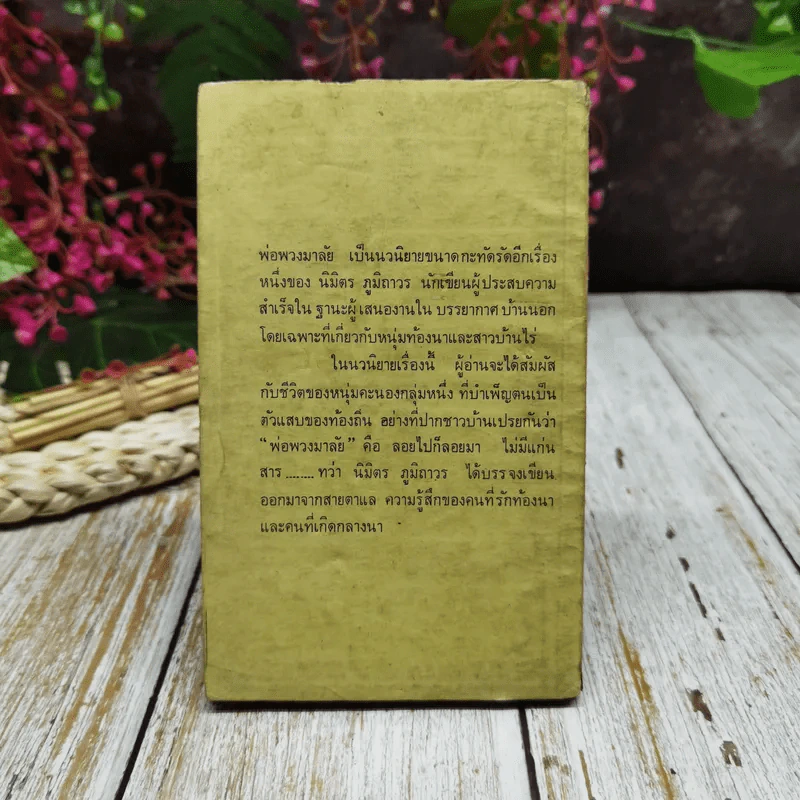 พ่อพวงมาลัย เป็นนวนิยายขนาดกะทัดรัดอีกเรื่อง
หนึ่งของ นิมิตร ภูมิถาวร นักเขียนผู้ประสบความ
สำเร็จใน ฐานะผู้เสนองานใน บรรยากาศ บ้านนอก
โดยเฉพาะที่เกี่ยวกับหนุ่มท้องนาและสาวบ้านไร่
ในนวนิยายเรื่องนี้ ผู้อ่านจะได้สัมผัส
กับชีวิตของหนุ่มคะนองกลุ่มหนึ่ง ที่บำเพ็ญตนเป็น
ตัวแสบของท้องถิ่น อย่างที่ปากชาวบ้านเปรยกันว่า
“พ่อพวงมาลัย” คือ ลอยไปก็ลอยมา ไม่มีแก่น
สาร ........ ทว่า นิมิตร ภูมิถาวร ได้บรรจงเขียน
ออกมาจากสายตาแล ความรู้สึกของคนที่รักท้องนา
และคนที่เกิดกลางนา